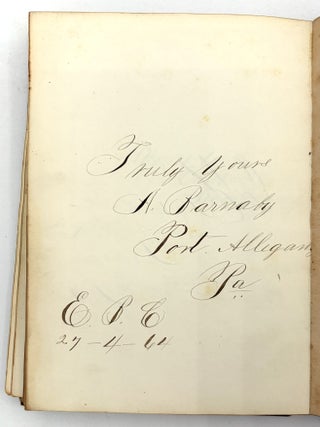 Truly Yours
A. Barnaby
Port. Allegany
Pa
E. P. C
27-4-64